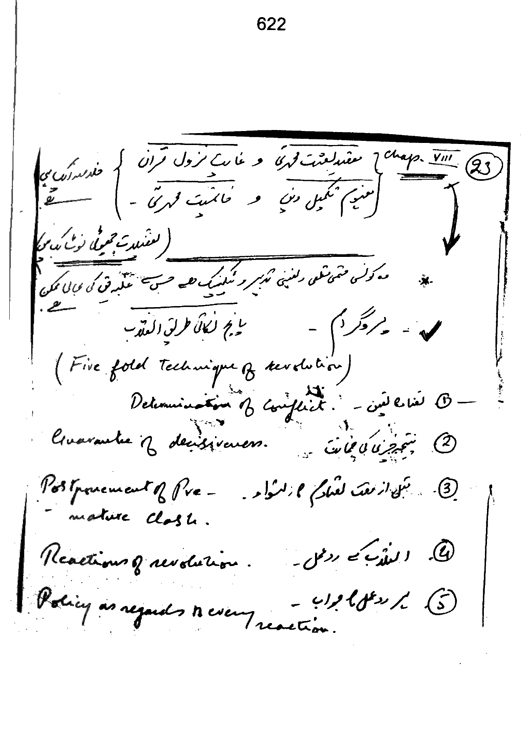 622
23 Chap. VIII مقصد بعثت محمدی و غایت نزول قرآن
مفہوم تکمیل دین و خاتمیت محمدی -
وہ کونسی حتمی قطعی و یقینی تدبیر و ٹیکنیک ہے جس سے غلبہ حق کی بحالی ممکن ہے
پروگرام - پانچ نکاتی طریق انقلاب
(Five fold technique of revolution)
① تضاد کا تعین - Determination of Conflict.
② نتیجہ خیزی کی ضمانت - Guarantee of decisiveness.
③ قبل از وقت تصادم کا التواء - Postponement of Pre-
mature clash.
④ انقلاب کے ردعمل - Reactions of revolution.
⑤ ہر ردعمل کا جواب - Policy as regards every
reaction.